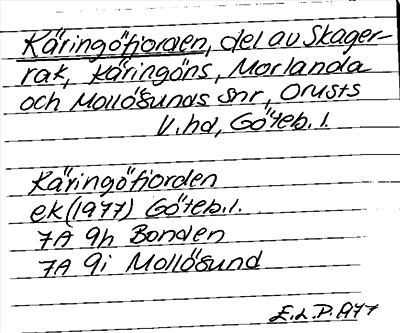 Käringöfjorden, del av Skager-
rak, Käringöns, Morlanda
och Mollösunds snr, Orusts
V.hd, Göteb.l.
Käringöfjorden
ek (1977) Göteb.l.
7A 9h Bonden
7A 9i Mollösund
E.L.P. 1977